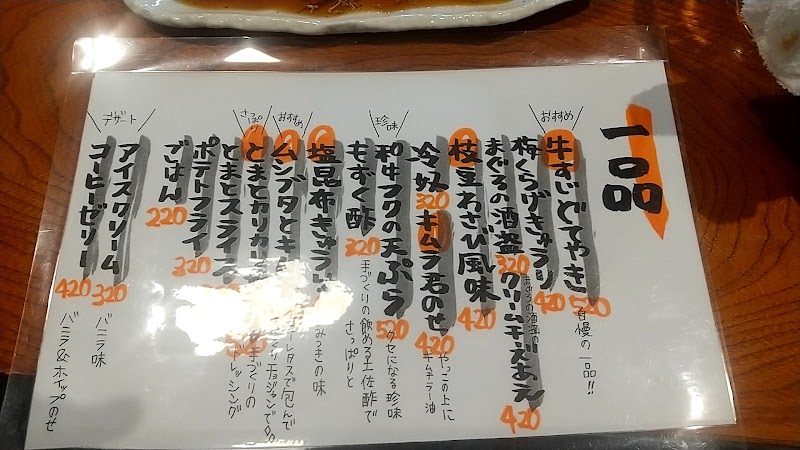 一品
おすすめ
牛すじどてやき 520
自慢の一品!!
梅くらげきゅうり 420
まぐろの酒盗 320
まぐろの酒盗の
クリームチーズあえ 420
枝豆わさび風味 420
冷奴 320
キムラ君のせ 420
やっこの上に
キムチラー油
珍味
和牛フクの天ぷら 520
クセになる珍味
もずく酢 320
手づくりの飲める土佐酢で
さっぱりと
塩昆布きゅうり
みつきの味
おすすめ
ムシブタとキ
レタスで包んで
チョジャンで
さっぱり
とまとカリカリ
手づくりの
ドレッシング
とまとスライス
ポテトフライ 320
ごはん 220
デザート
アイスクリーム 320
バニラ味
コーヒーゼリー 420
バニラ&ホイップのせ